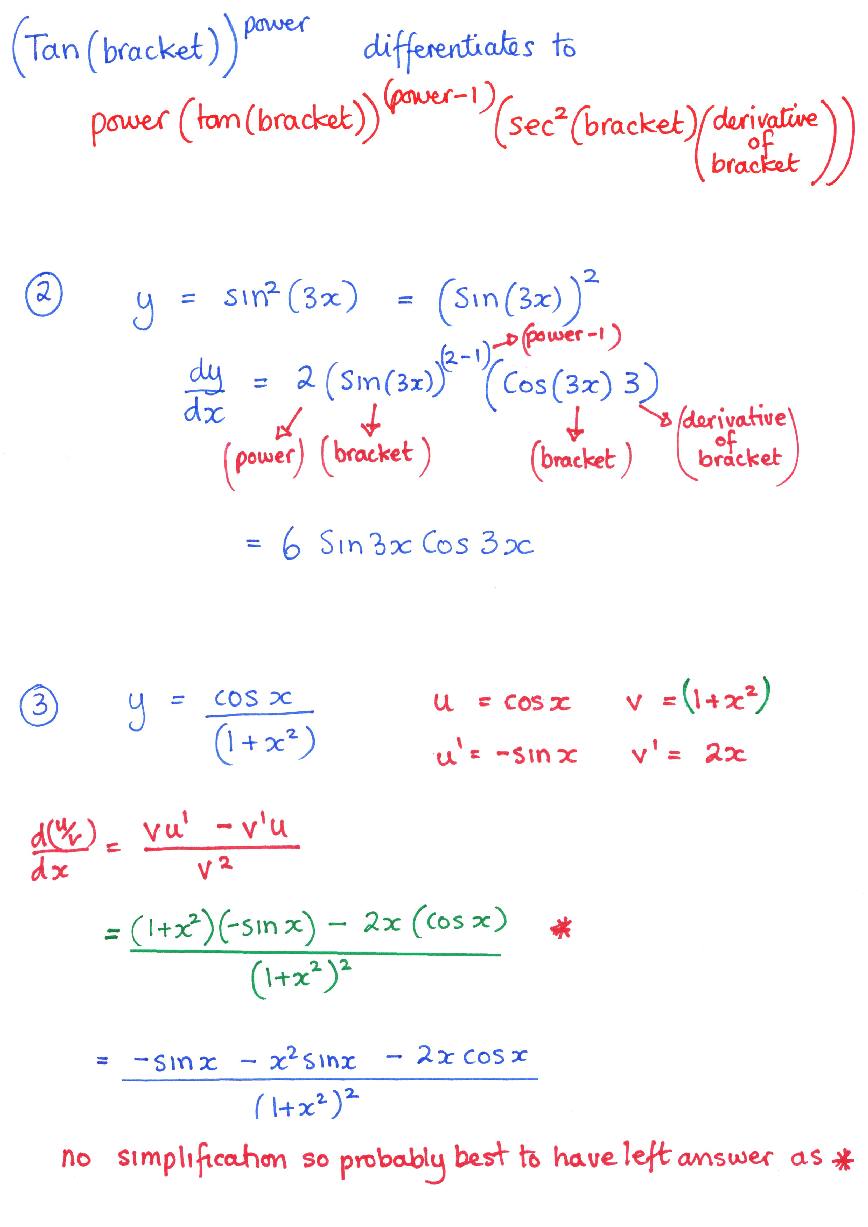 (Tan(bracket))^power differentiates to
power(tan(bracket))^(power-1)(sec²(bracket)(derivative of bracket))
② y = sin²(3x) = (Sin(3x))²
dy/dx = 2(Sin(3x))^(2-1)(Cos(3x) 3)
(power-1)
(power) (bracket) (bracket) (derivative of bracket)
= 6 Sin3x Cos 3x
③ y = cos x/(1+x²) u = cosx v = (1+x²)
u' = -sin x v' = 2x
d(u/v)/dx = (vu' - v'u)/v²
= ((1+x²)(-sin x) - 2x (cos x))/(1+x²)² *
= (-sinx - x²sinx - 2x cosx)/(1+x²)²
no simplification so probably best to have left answer as *